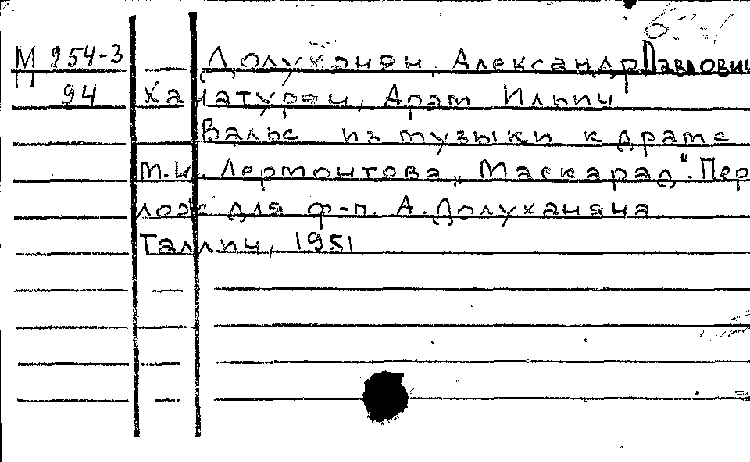 М 954-3 Долуханян, Александр Павлович
П
94 Хачатурян, Арам Ильич
Вальс из музыки к драме
М.Ю. Лермонтова „Маскарад". Пер
лож для ф-п. А. Долуханяна
Таллин, 1951